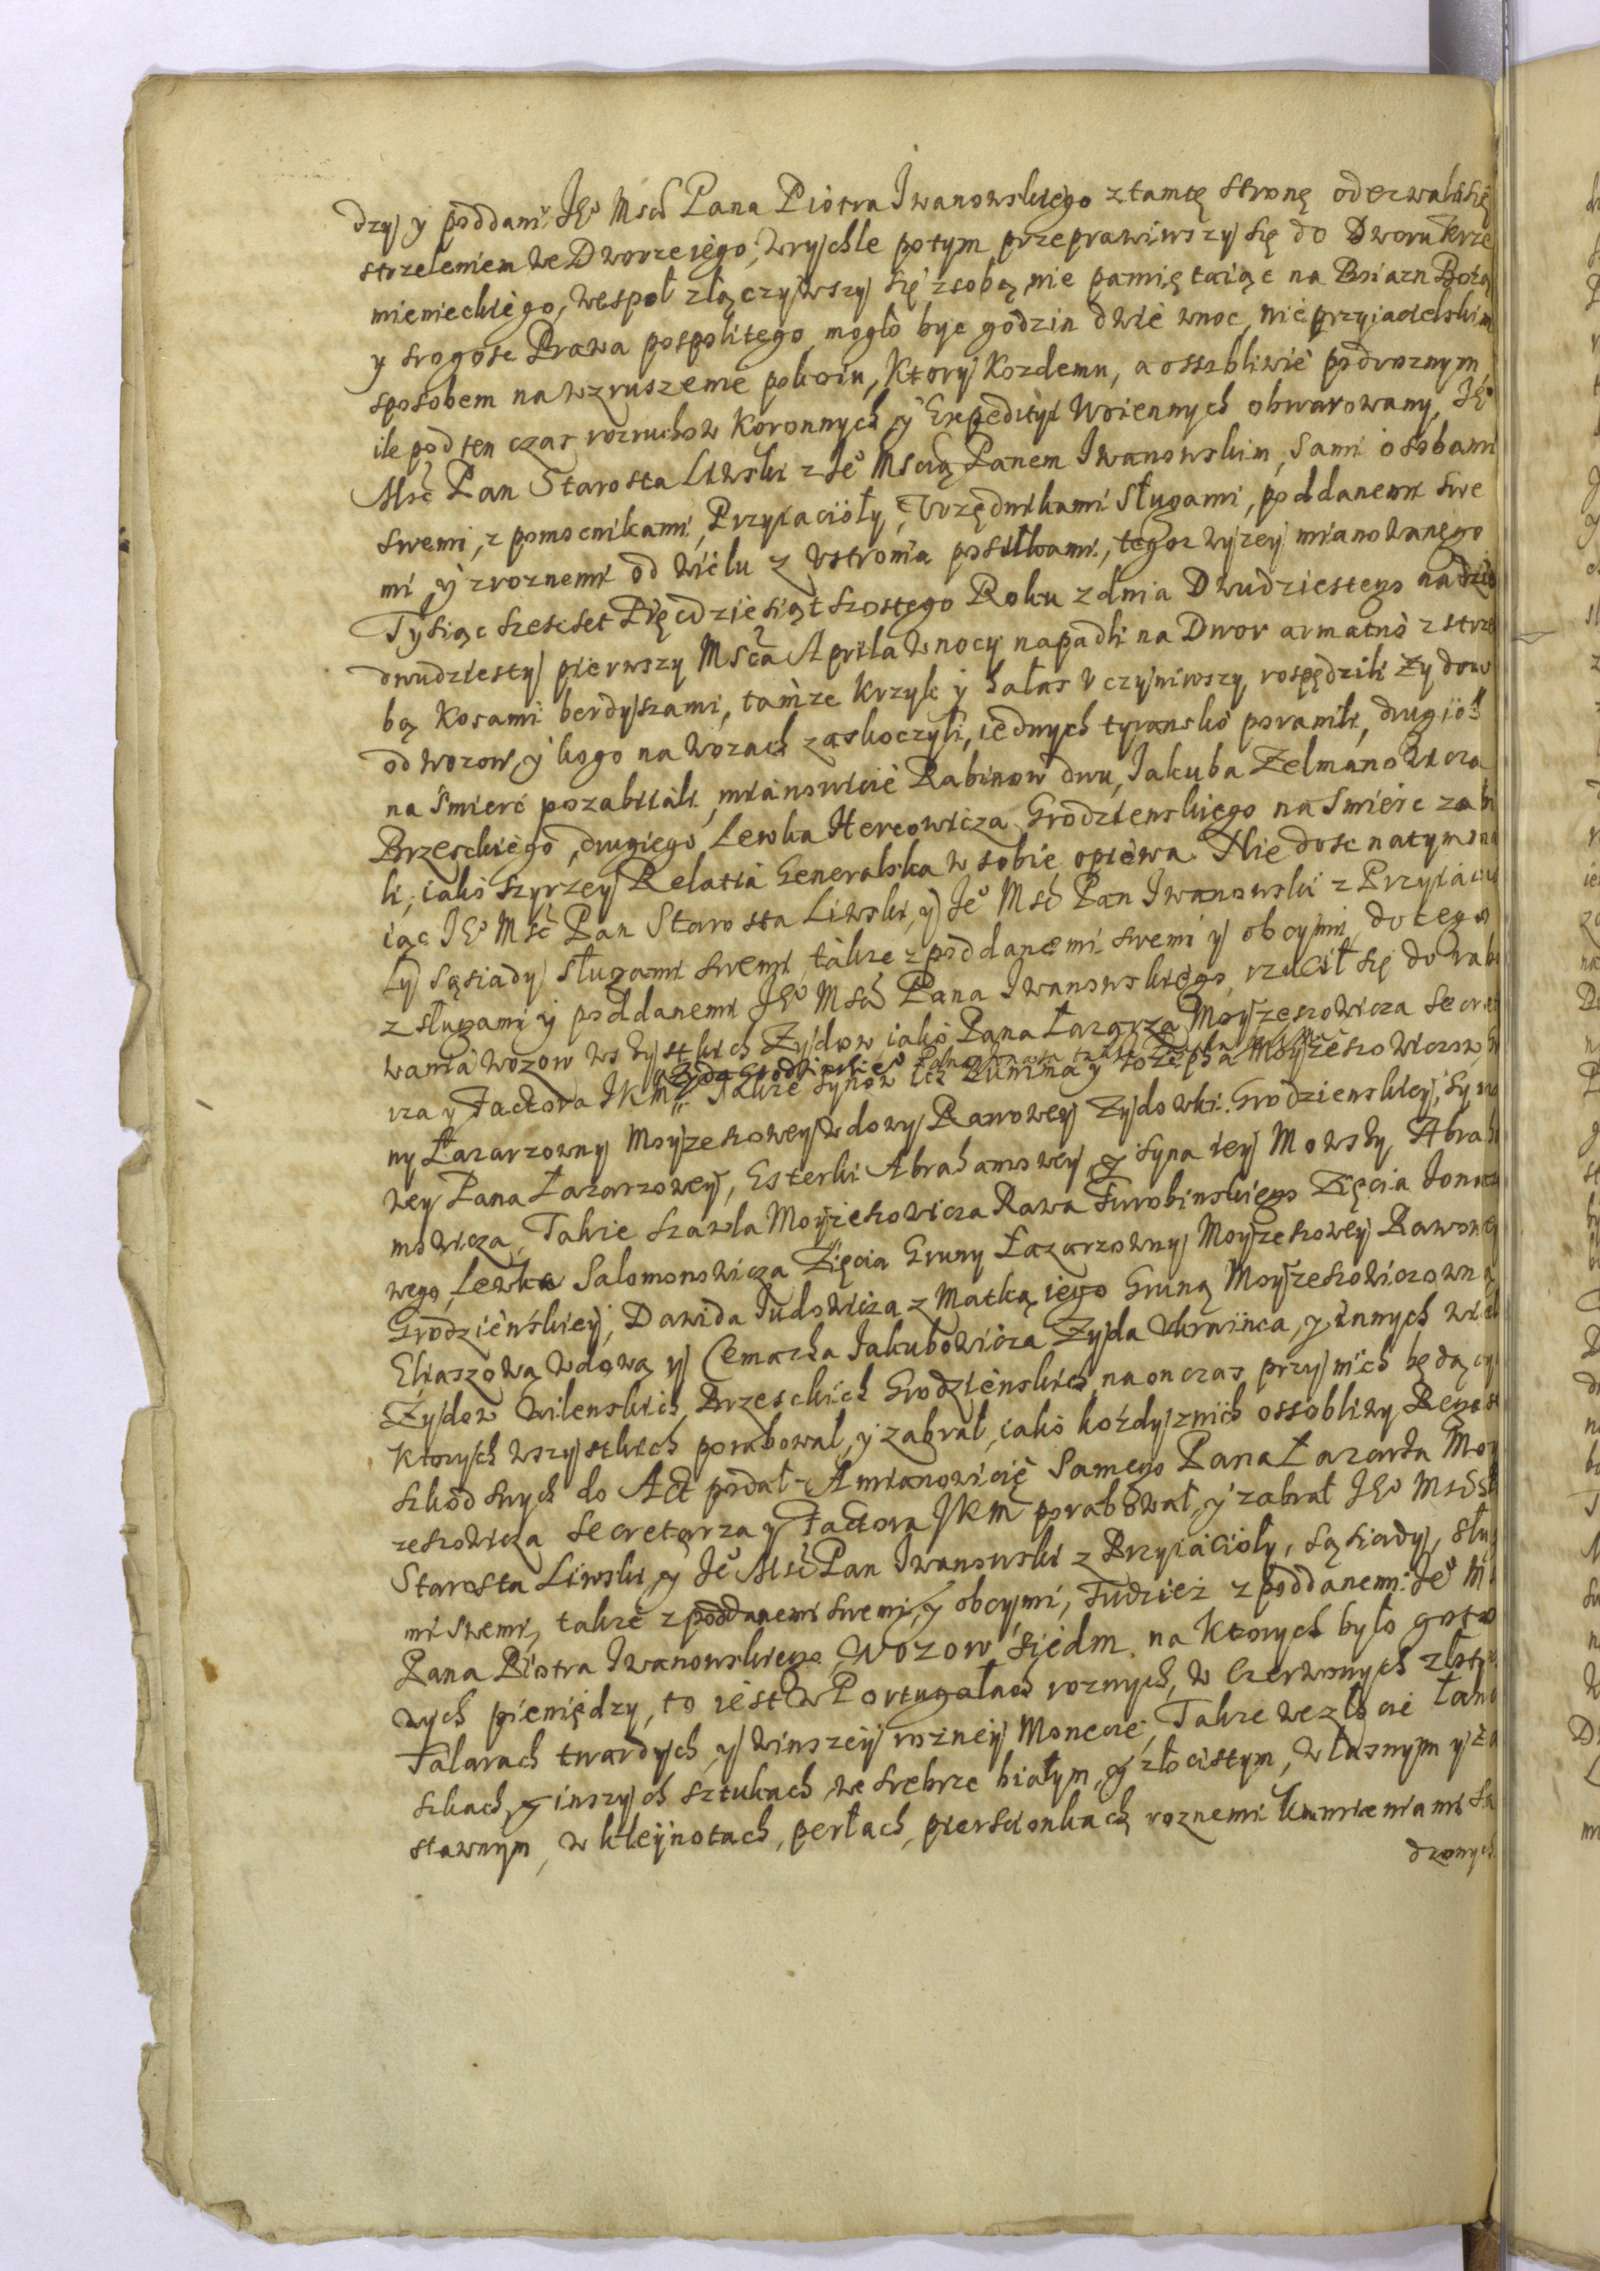 dzy y poddani Je° Mści Pana Piotra Iwanowskiego ztamtę stronę oderwali się
strzeleniem we Dworze iego, wrychle potym przeprawiwszy się do Dworu Krze
mienieckiego, wespoł złączywszy się zsobą, nie pamiętaiąc na Boiazn Bożą
y srogosc Prawa pospolitego, mogło byc godzin dwie wnoc, nieprzyiacielskim
sposobem na wzruszenie pokoiu, ktory kozdemu, a ossobliwie podroznym
ile pod ten czas rozruchow Koronnych, y Expedityi Woiennych obwarowany, Je°
Mść Pan Starosta Liwski z Je° Mscią Panem Iwanowskim, sami osobami
swemi, z pomocnikami, Przyiacioły, Vrzędnikami Sługami, poddanemi swe
mi, y zroznemi od wielu z Vstronia posiłkami, tegoz wyzey mianowanego
Tysiąc szescset Pięcdziesiąt szostego Roku z dnia Dwudziestego na dzien
dwudziesty pierwszy Msca Aprila w nocy napadli na Dwor armatno z strze
bą kosami berdyszami, tamze krzyk y hałas Vczyniwszy, rospędzili Zydow
od wozow, y kogo na wozach zaskoczyli, iednych tyransko poranili, drugich
na smierc pozabiiali, mianowicie Rabinow dwu, Jakuba Zelmanowicza
Brzeskiego, drugiego Lewka Hercowicza Grodzienskiego na smierc zabi
li, iako szyrzey Relatia Generalska w sobie opiewa. Nie dosc natym ma
iąc Je° Mść Pan Starosta Liwski, y Je° Mść Pan Iwanowski z Przyiacio
ły sąsiady sługami swemi, takze z poddanemi swemi y obcymi, do tego
z sługami y poddanemi Je° Mści Pana Iwanowskiego, rzucił się do rabo
wania wozow wszystkich Zydow iako Pana Łazarza Moyzeszowicza Secreta
rza y Factora JKM Takze synow iez y Iozepha Moyzeszowiczow,
ny Łazarzowny Moyzeszowey wdowy Rawowey Zydowki Grodzienskiey, Syno
wey Pana Łazarzowey, Esterki Abrahamowey, y syna iey Mowszy Abraha
mowicza, Takie Szawla Moyzeszowicza Rawa Turobinskiego Zięcia Iona
wego, Lewka Salomonowicza Zięcia Gruny Łazarzowny Moyzeszowey Rawowey
Grodzieńskiey, Dawida Iudowicza z Matką iego Gruną Moyzeszowiczowną
Eliaszową wdową y Cemacha Jakubowicza Zyda Vkrainca, y innych wielu
Zydow Wilenskich, Brzeskich Grodzienskich, na on czas przy nich będący
Ktorych wszystkich porabował, y zabrał, iako kozdy znich ossobliwy Regestr
szkod swych do Act podał. A mianowicie Samego Pana Łazarza Moy
zeszowicza Secretarza y Factora JKM porabował, y zabrał Je° Mść
Starosta Liwski, y Je° Mść Pan Iwanowski z Przyiacioły, sąsiady, sługa
mi swemi, takze z poddanemi swemi, y obcymi, Tudziez z poddanemi Je° M
Pana Piotra Iwanowskiego, Wozow siedm na ktorych było goto
wych pieniędzy, to iest w Portugałach roznych, w Czerwonych złoty
Talarach twardych, y winszey rozney Monecie, Takze we złocie łancu
szkach, y inszych sztukach, we srebrze białym, y złocistym, własnym y za
stawnym, w kleynotach, perłach, pierscionkach, roznemi kamieniami sa
dzonych